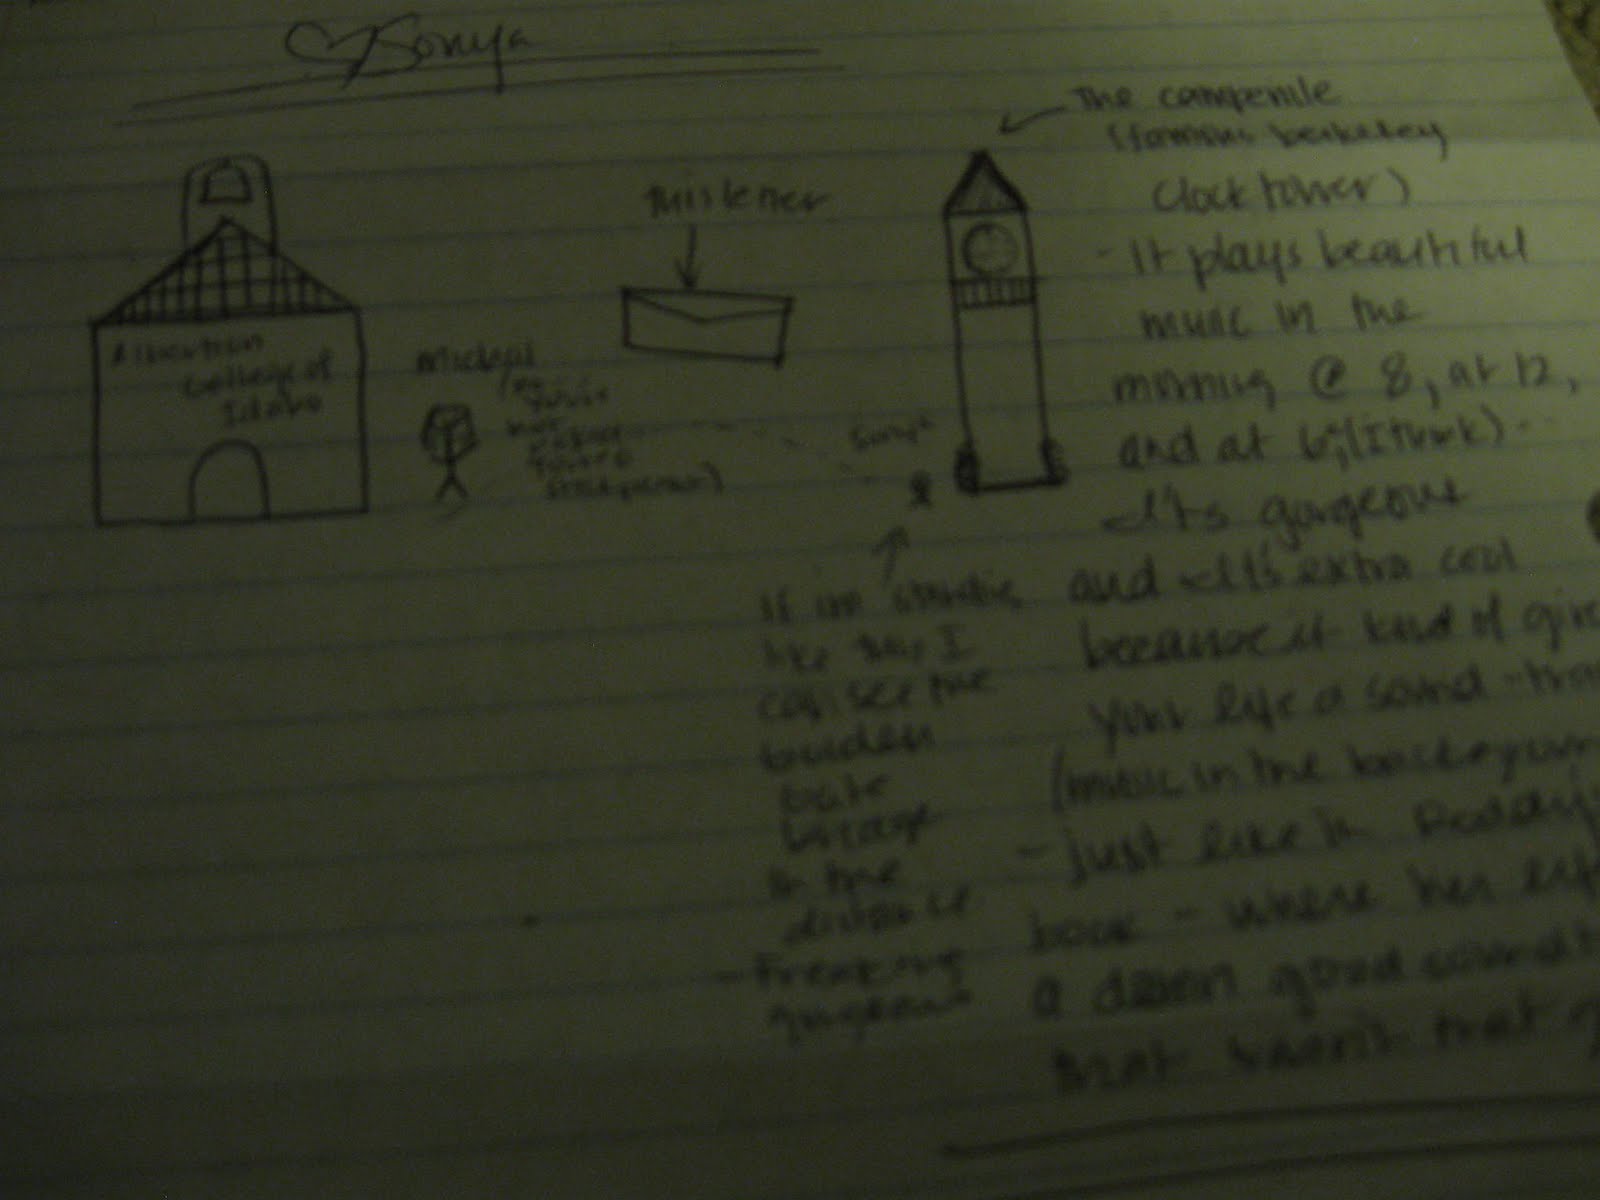 ♡Sonya
The campenile
(famous berkeley
clock tower)
- It plays beautiful
music in the
morning @ 8, at 12,
and at 6, (I think)...
It's gorgeous
and It's extra cool
because it kind of give
your life a sound-tra
(music in the backgroun
- just like in
book - where her life
a damn good soundt
that wasn't that
this letter
Albertson
College of
Idaho
Michael
stick person)
Sonya
If im standing
like this, I
can see the
Golden
Gate
bridge
in the
distance
- Freaking
gorgeous